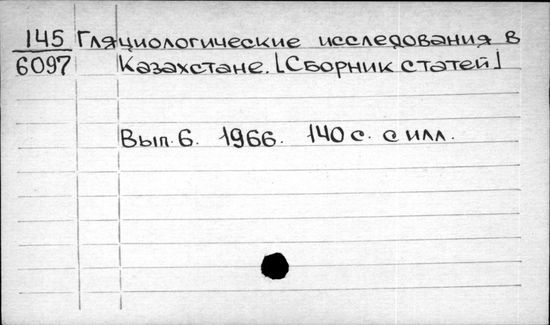 145 Гляциологические исследования в
6097 Казахстане. [Сборник статей]
Вып. 6. 1966. 140 с. с илл.